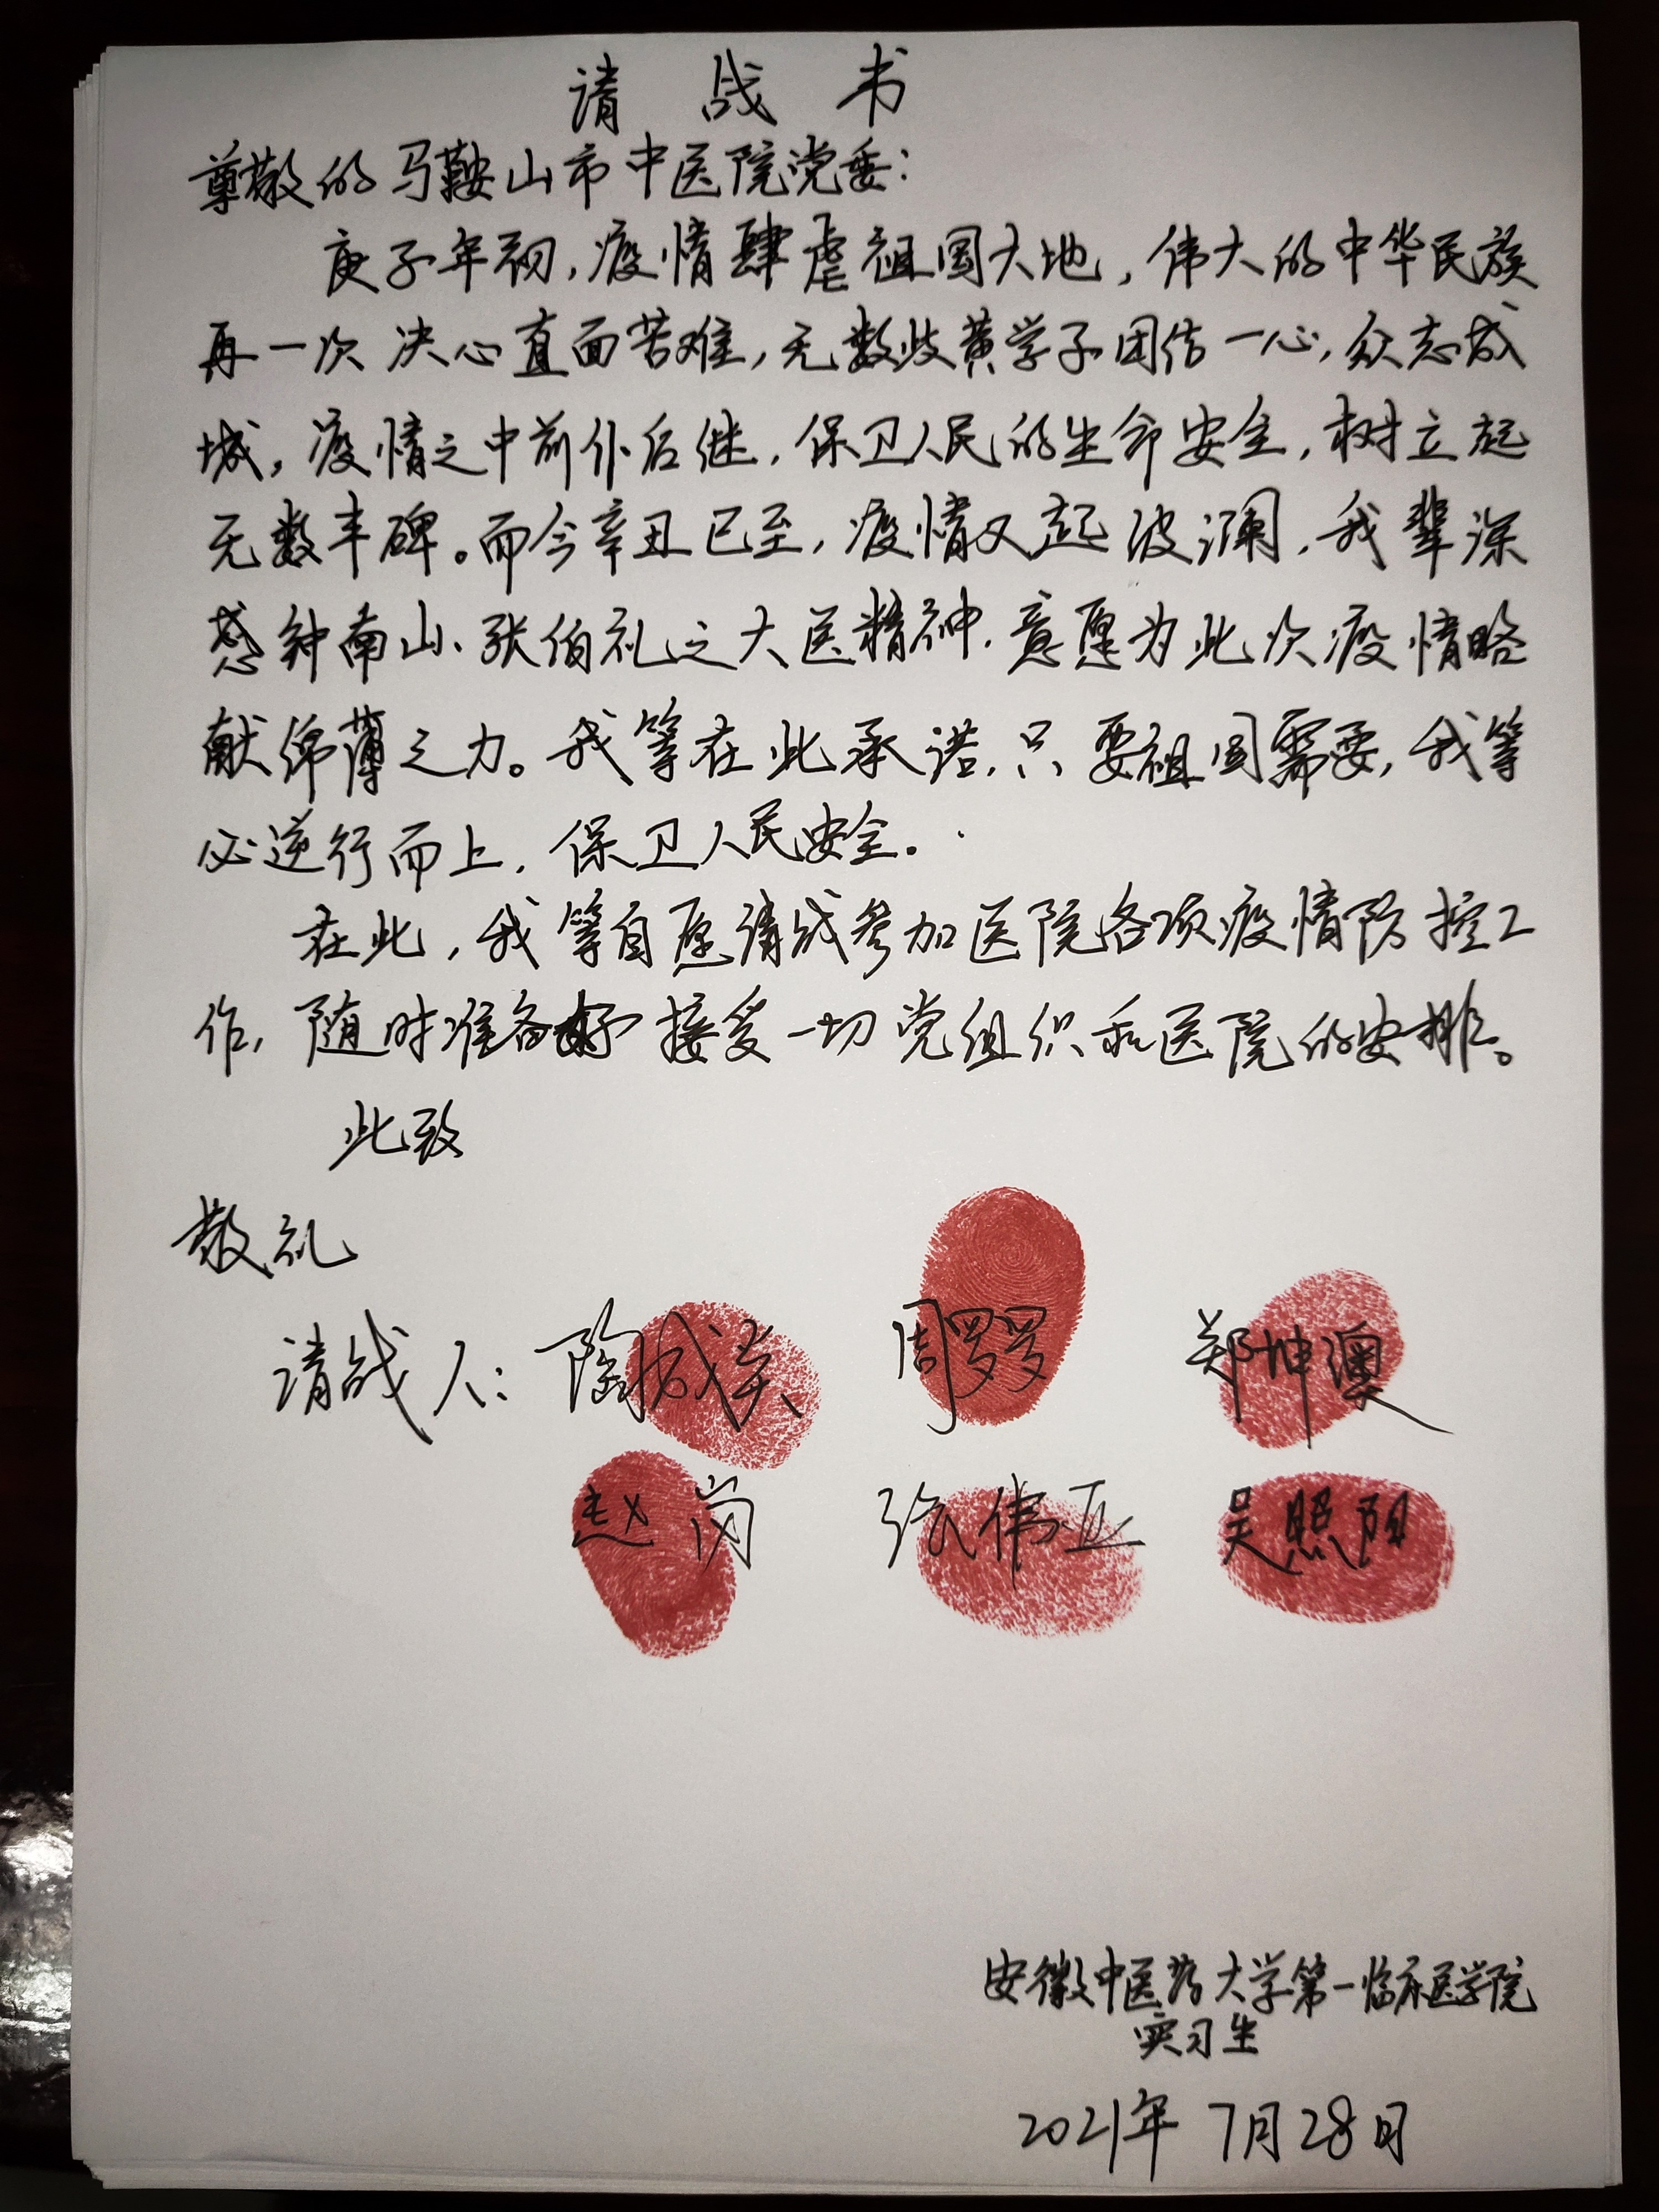 请战书
尊敬的马鞍山市中医院党委：
庚子年初，疫情肆虐祖国大地，伟大的中华民族
再一次决心直面苦难，无数岐黄学子团结一心，众志成
城，疫情之中前仆后继，保卫人民的生命安全，树立起
无数丰碑。而今辛丑已至，疫情又起波澜，我辈深
感钟南山、张伯礼之大医精神，意愿为此次疫情略
献绵薄之力。我等在此承诺，只要祖国需要，我等
必逆行而上，保卫人民安全。
在此，我等自愿请战参加医院各项疫情防控工
作，随时准备好接受一切党组织和医院的安排。
此致
敬礼
请战人：陶城 周罗罗 郑坤澳
赵岗 张伟亚 吴照阳
安徽中医药大学第一临床医学院
实习生
2021年7月28日